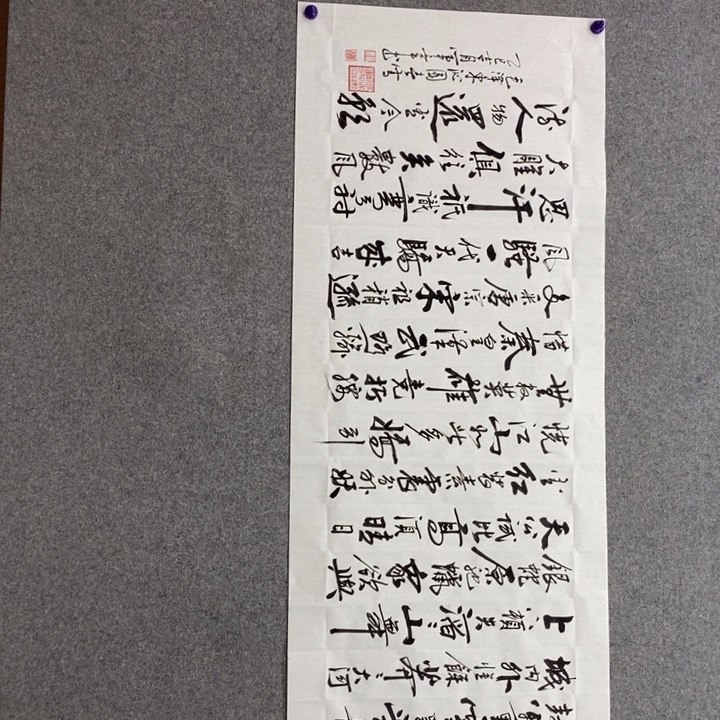 封萬里雪飄望
城内外惟餘莽大河
上下頓失滔滔山舞
銀蛇原馳蠟象欲與
天公試比高須晴日
看紅裝素裹分外妖
嬈江山如此多嬌引
無數英雄競折腰
惜秦皇漢武略輸
文采唐宗宋祖稍遜
風騷一代天驕成吉
思汗祇識彎弓射
大雕俱往矣數風
流人物還看今朝
毛澤東沁園春雪